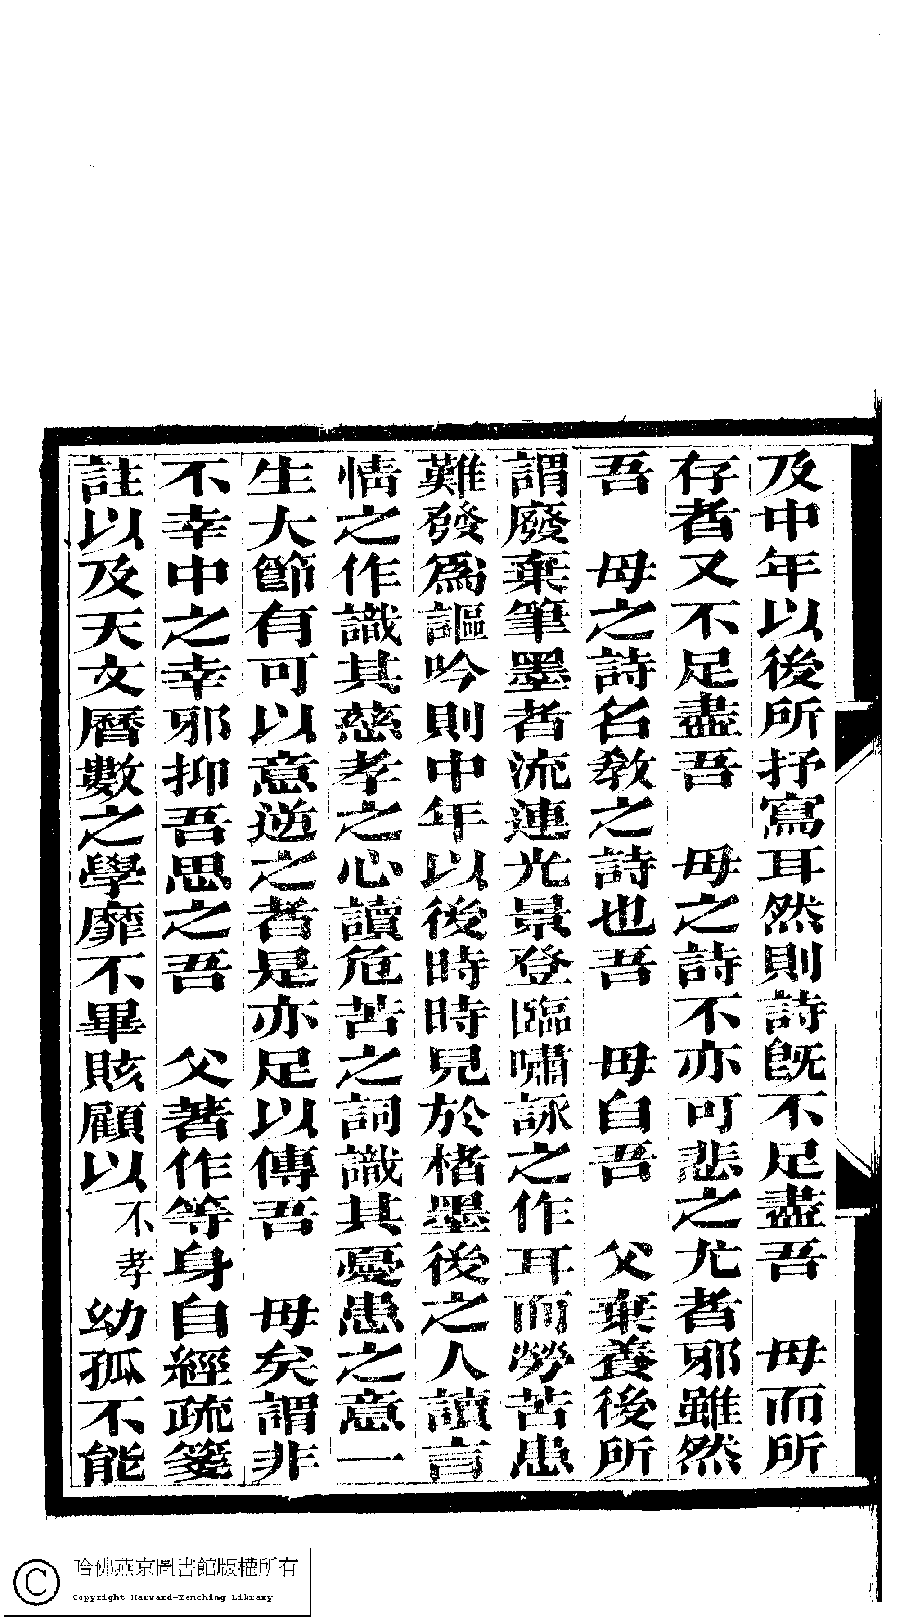 及中年以後所抒寫耳然則詩旣不足盡吾　母而所
存者又不足盡吾　母之詩不亦可悲之尤者邪雖然
吾　母之詩名敎之詩也吾　母自吾　父棄養後所
謂廢棄筆墨者流連光景登臨嘯詠之作耳而勞苦患
難發爲謳吟則中年以後時時見於楮墨後之人讀言
情之作識其慈孝之心讀危苦之詞識其憂患之意一
生大節有可以意逆之者是亦足以傳吾　母矣謂非
不幸中之幸邪抑吾思之吾　父著作等身自經疏箋
註以及天文曆數之學靡不畢賅顧以不孝幼孤不能
哈佛燕京圖書館版權所有
Copyright Harvard-Yenching Library